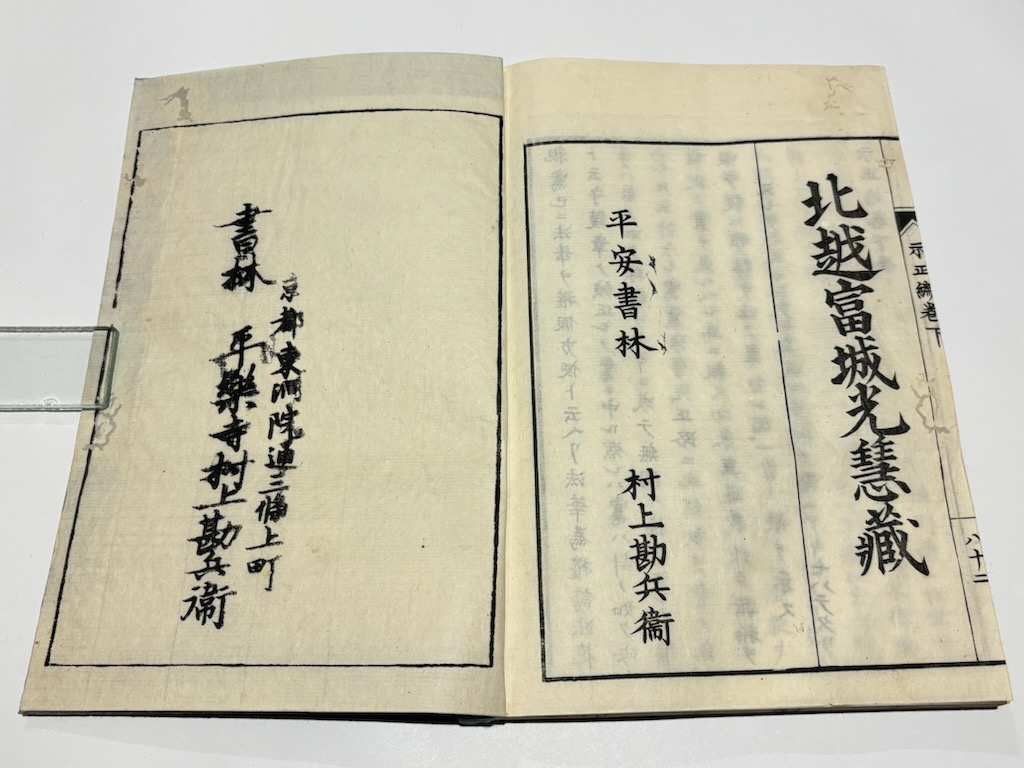 示正編卷下
八十二
北越富城光慧藏
平安書林
村上勘兵衞
京都東洞院通三條上町
書林
平樂寺村上勘兵衞